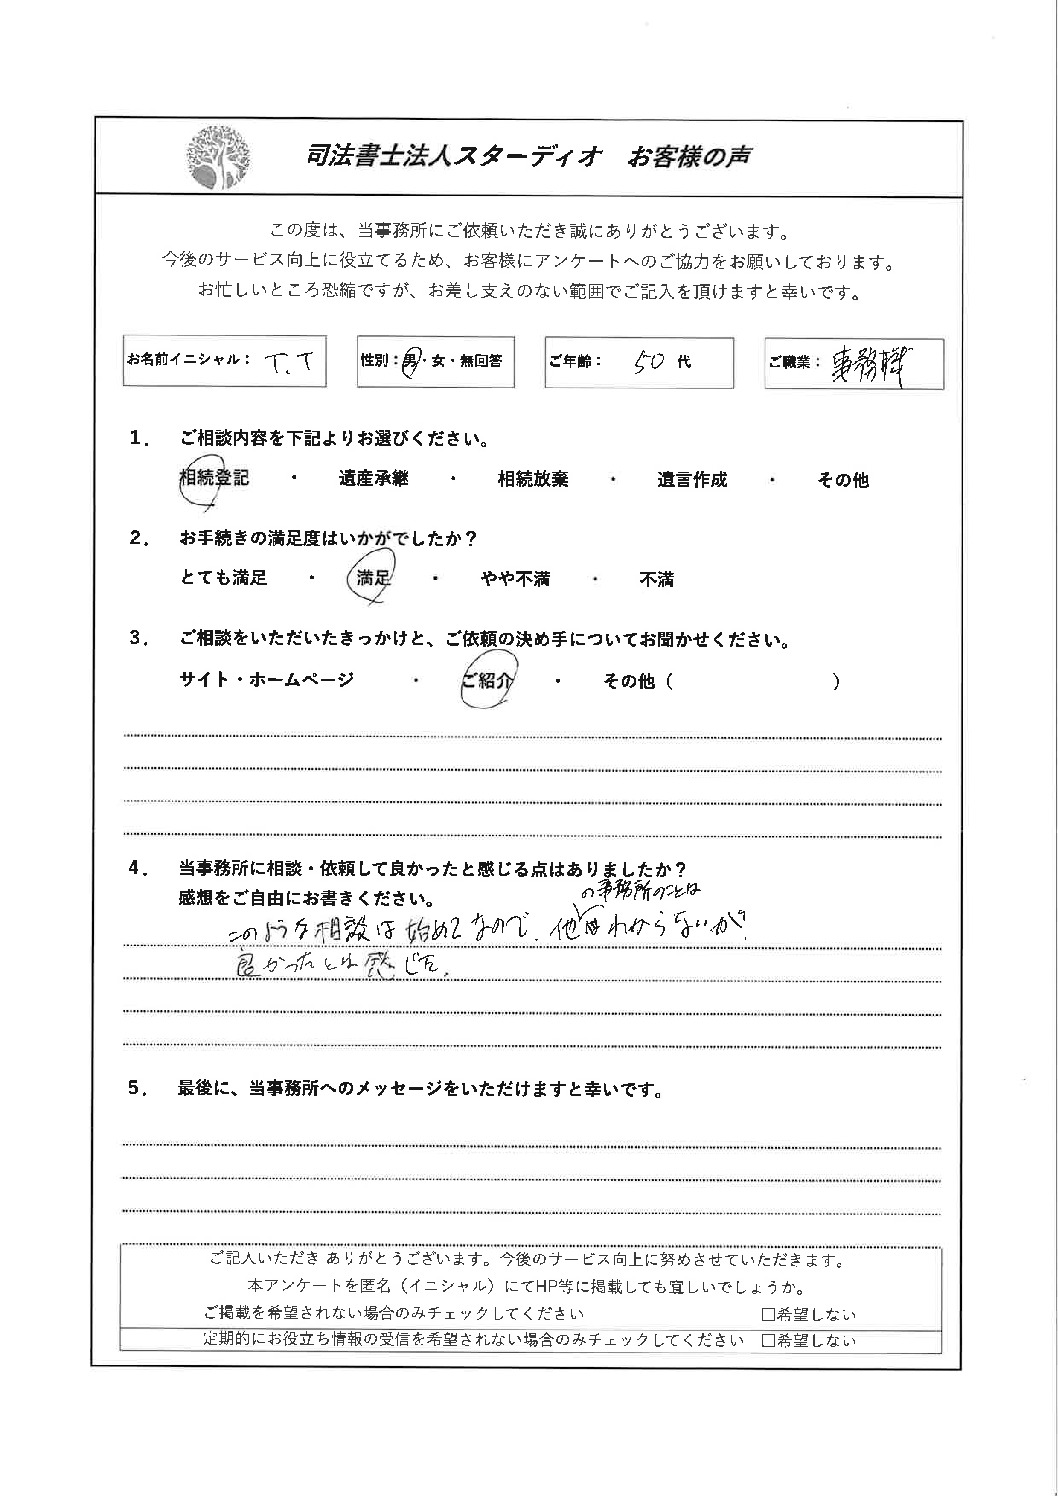 司法書士法人スターディオ お客様の声
この度は、当事務所にご依頼いただき誠にありがとうございます。
今後のサービス向上に役立てるため、お客様にアンケートへのご協力をお願いしております。
お忙しいところ恐縮ですが、お差し支えのない範囲でご記入を頂けますと幸いです。
お名前イニシャル： T.T 性別：男・女・無回答 ご年齢： 50 代 ご職業： 事務職
1. ご相談内容を下記よりお選びください。
相続登記 ・ 遺産承継 ・ 相続放棄 ・ 遺言作成 ・ その他
2. お手続きの満足度はいかがでしたか？
とても満足 ・ 満足 ・ やや不満 ・ 不満
3. ご相談をいただいたきっかけと、ご依頼の決め手についてお聞かせください。
サイト・ホームページ ・ ご紹介 ・ その他（ ）
4. 当事務所に相談・依頼して良かったと感じる点はありましたか？
感想をご自由にお書きください。
の事務所のことは
このような相談は始めてなので、他はわからないが
良かったとは感じた。
5. 最後に、当事務所へのメッセージをいただけますと幸いです。
ご記入いただき ありがとうございます。今後のサービス向上に努めさせていただきます。
本アンケートを匿名（イニシャル）にてHP等に掲載しても宜しいでしょうか。
ご掲載を希望されない場合のみチェックしてください □希望しない
定期的にお役立ち情報の受信を希望されない場合のみチェックしてください □希望しない